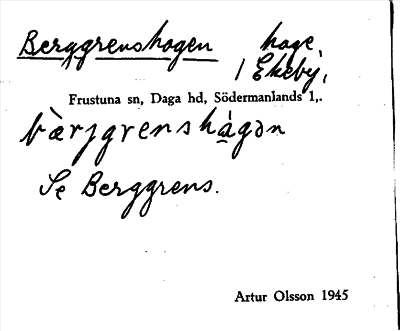 Berggrenshagen hage,
/ Ekeby,
Frustuna sn, Daga hd, Södermanlands l,.
bà̀rjgrenshá̱gən
Se Berggrens.
Artur Olsson 1945